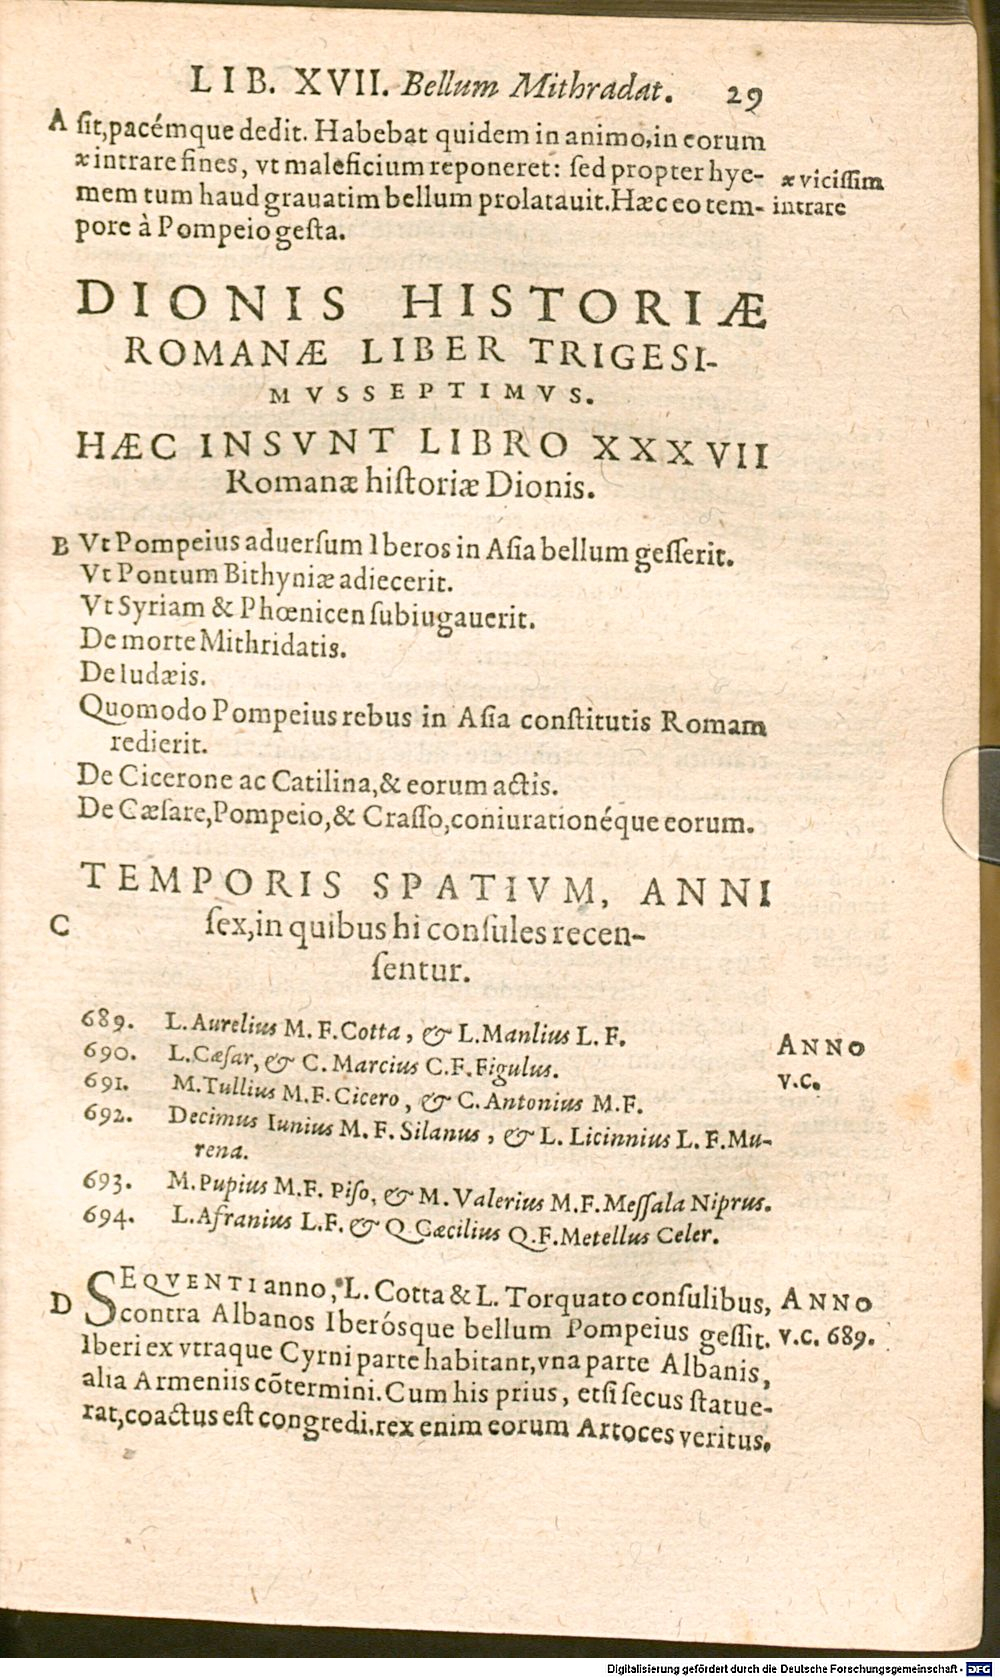 LIB. XVII. Bellum Mithradat. 29
A ſit,pacémque dedit. Habebat quidem in animo,in eorum
* intrare fines, vt maleficium reponeret: ſed propter hye- * viciſſim
mem tum haud grauatim bellum prolatauit.Hæc eo tem- intrare
pore à Pompeio geſta.
DIONIS HISTORIÆ
ROMANÆ LIBER TRIGESI-
MVSSEPTIMVS.
HÆC INSVNT LIBRO XXXVII
Romanæ hiſtoriæ Dionis.
B Vt Pompeius aduerſum Iberos in Aſia bellum geſſerit.
Vt Pontum Bithyniæ adiecerit.
Vt Syriam & Phœnicen ſubiugauerit.
De morte Mithridatis.
De Iudæis.
Quomodo Pompeius rebus in Aſia conſtitutis Romam
redierit.
De Cicerone ac Catilina,& eorum actis.
De Cæſare,Pompeio,& Craſſo,coniurationéque eorum.
TEMPORIS SPATIVM, ANNI
C ſex,in quibus hi conſules recen-
ſentur.
689. L.Aurelius M. F.Cotta, & L.Manlius L. F. ANNO
690. L.Cæſar, & C. Marcius C.F.Figulus. V.C.
691. M.Tullius M.F.Cicero, & C.Antonius M.F.
692. Decimus Iunius M. F. Silanus, & L. Licinnius L. F.Mu-
rena.
693. M.Pupius M.F. Piſo, & M.Valerius M.F.Meſſala Niprus.
694. L.Afranius L.F. & Q.Cæcilius Q.F.Metellus Celer.
D SEQVENTI anno, L. Cotta & L. Torquato conſulibus, ANNO
contra Albanos Iberósque bellum Pompeius geſſit. V.C. 689.
Iberi ex vtraque Cyrni parte habitant,vna parte Albanis,
alia Armeniis cõtermini.Cum his prius, etſi ſecus ſtatue-
rat,coactus eſt congredi.rex enim eorum Artoces veritus,
Digitalisierung gefördert durch die Deutsche Forschungsgemeinschaft - DFG